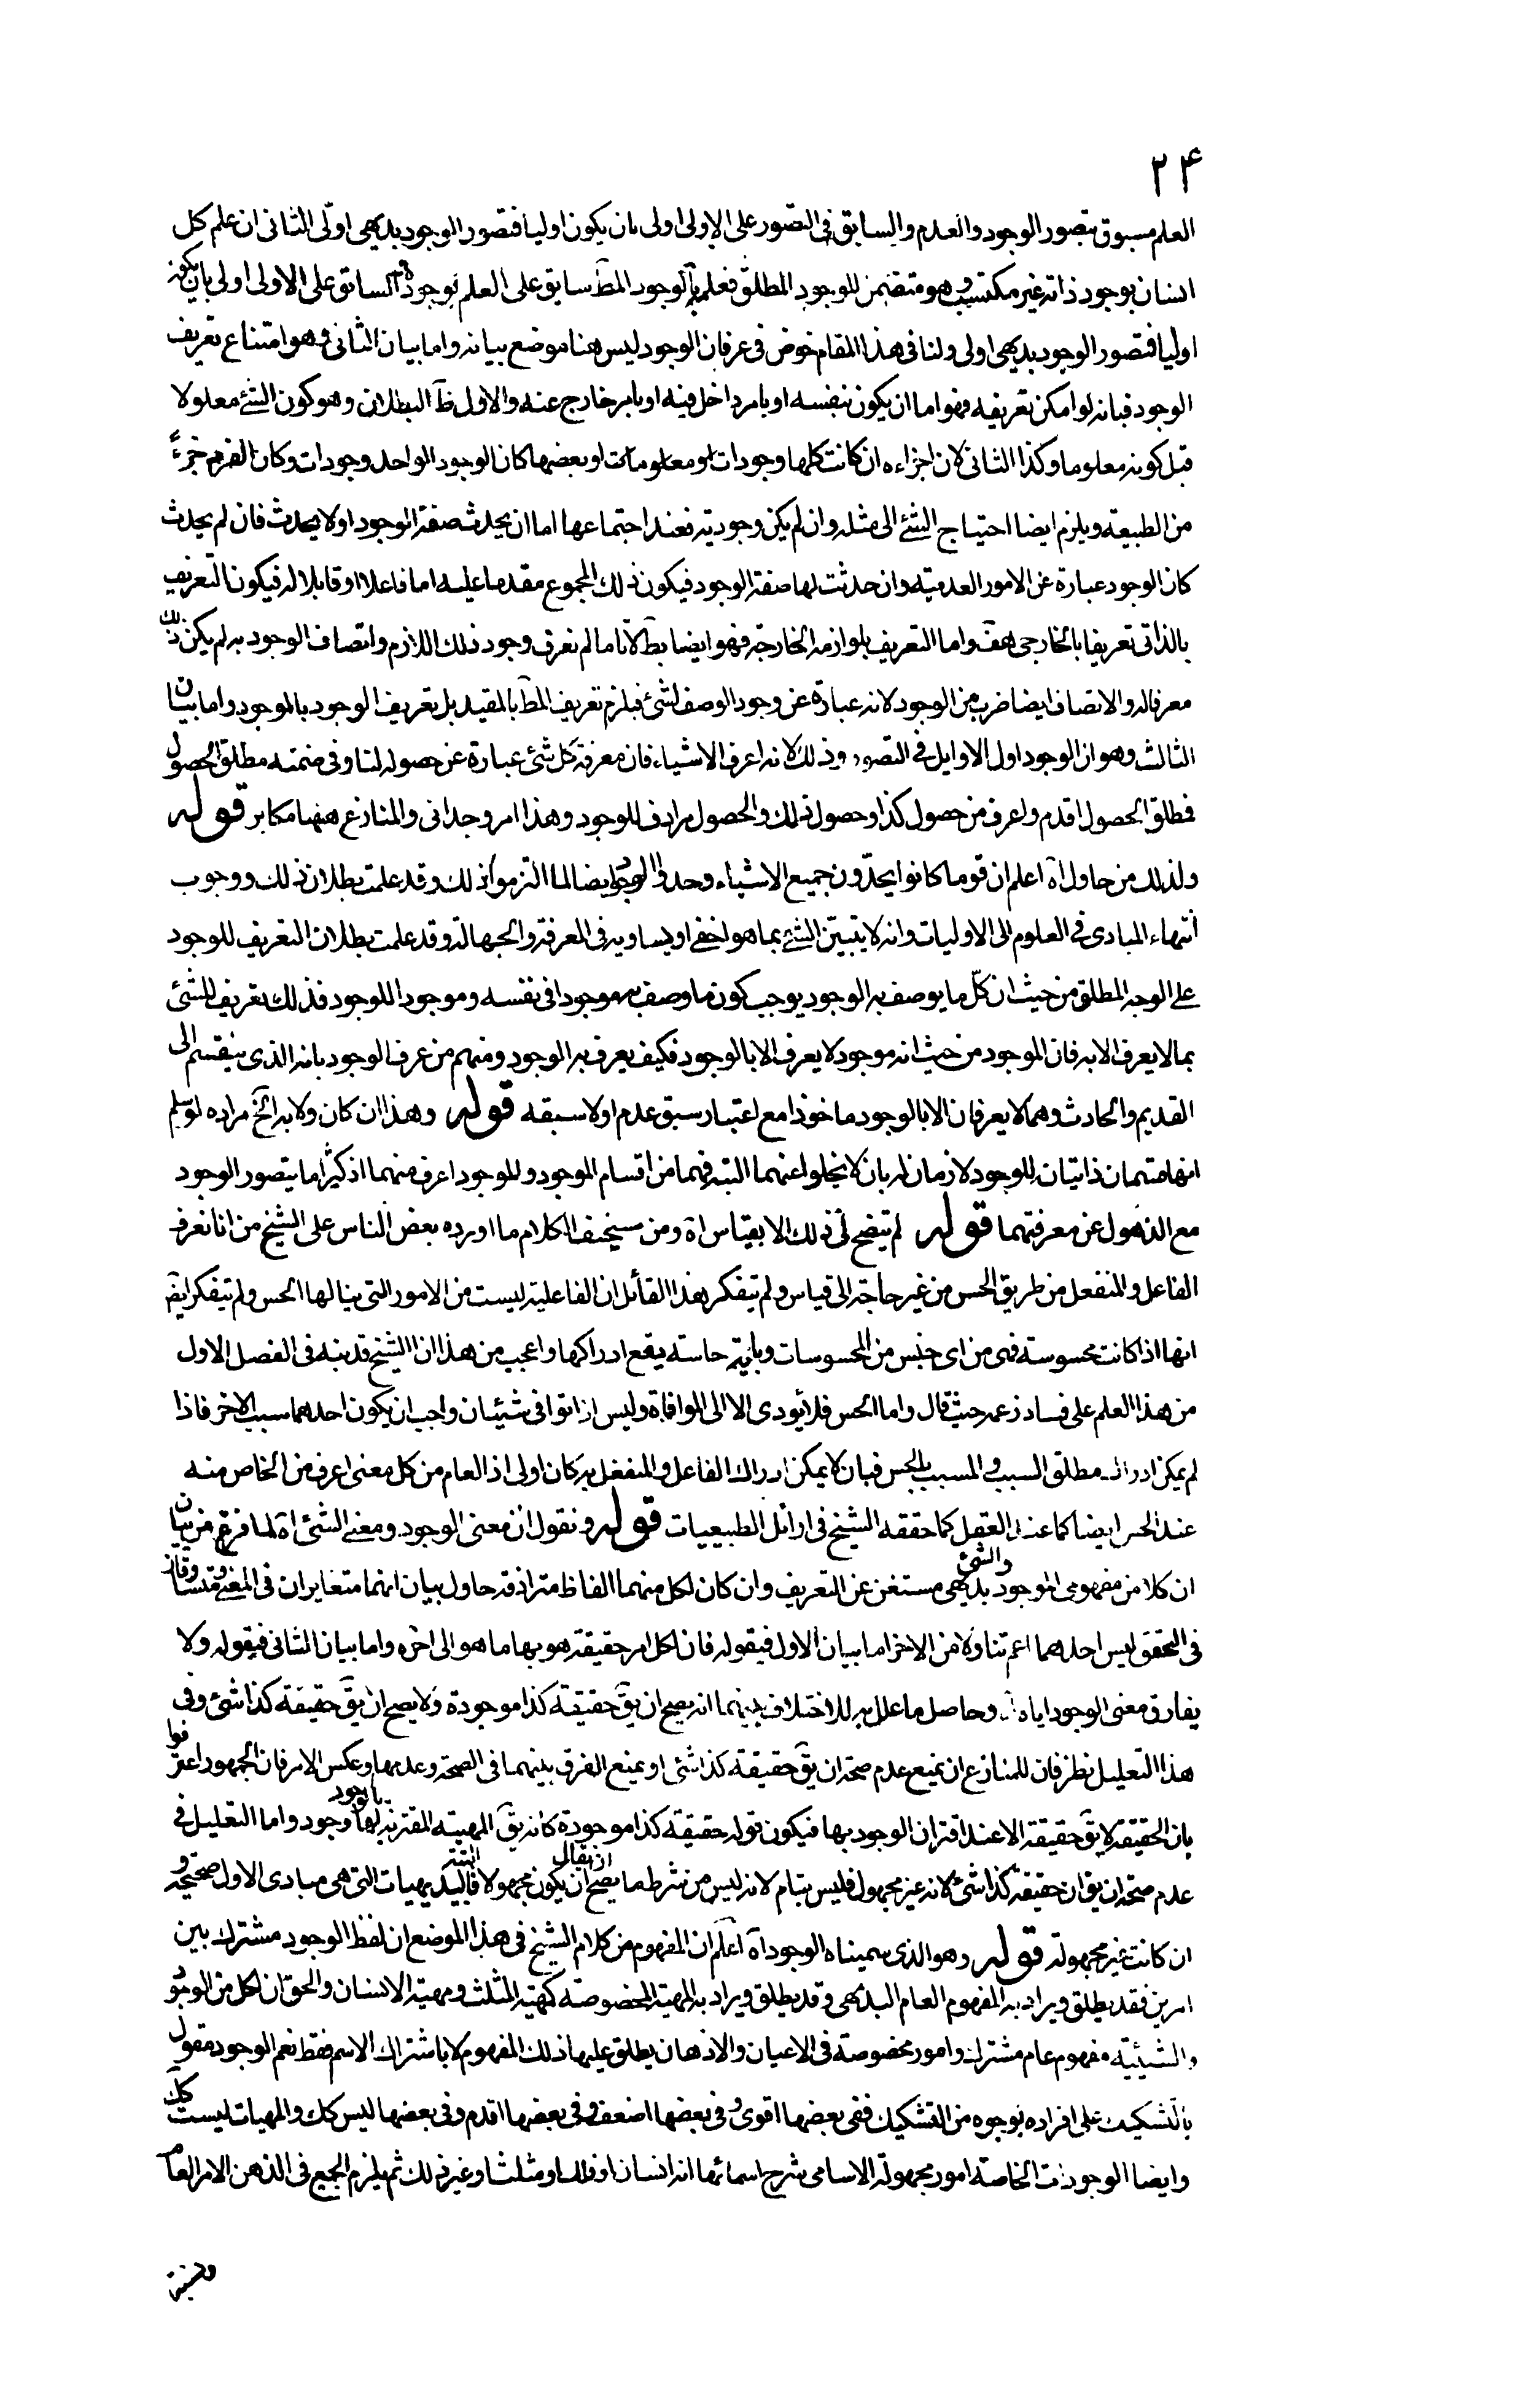 ۲۴
العلم مسبوق بتصور الوجود والعدم والسابق فى التصور على الاولى اولى بان يكون اوليا فتصور الوجود بديهى اولى الثانى ان علم كل
انسان بوجود ذاته غير مكتسب وهو متضمن للوجود المطلق فعلمه بالوجود المط سابق على العلم بوجوده والسابق على الاولى اولى بان يكون
اوليا فتصور الوجود بديهى اولى ولنا فى هذا المقام خوض فى عرفان الوجود ليس هنا موضع بيانه واما بيان الثانى وهو امتناع تعريف
الوجود فبانه لو امكن تعريفه فهو اما ان يكون بنفسه او بامر داخل فيه او بامر خارج عنه والاول ظ البطلان وهو كون الشئ معلولا
قبل كونه معلوما وكذا الثانى لان اجزاءه ان كانت كلها وجودات او معلومات او بعضها كان الوجود الواحد وجودات وكان الفرد جزء
من الطبيعة ويلزم ايضا احتياج الشئ الى مثله وان لم يكن وجودية فعند اجتماعها اما ان يحدث صفة الوجود اولا يحدث فان لم يحدث
كان الوجود عبارة عن الامور العدمية وان حدثت لها صفة الوجود فيكون ذلك المجموع مقدما عليه اما فاعلا او قابلا له فيكون التعريف
بالذاتى تعريفا بالخارجى هف واما التعريف بلوازمه الخارجة فهو ايضا بط لانا ما لم نعرف وجود ذلك اللازم واتصاف الوجود به لم يكن ذلك
معرفا له والاتصاف ايضا ضرب من الوجود لانه عبارة عن وجود الوصف لشئ فيلزم تعريف المط بالمقيد بل تعريف الوجود بالموجود واما بيان
الثالث وهو ان الوجود اول الاوايل فى التصور وذلك لانه اعرف الاشياء فان معرفة كل شئ عبارة عن حصوله لنا وفى ضمنه مطلق الحصول
فمطلق الحصول اقدم واعرف من حصول كذا وحصول ذلك والحصول مرادف للوجود وهذا امر وجدانى والمنازع ههنا مكابر قوله
ولذلك من حاول اه اعلم ان قوما كانوا يحدّون جميع الاشياء وحدوا الوجود ايضا لما التزموا ذلك وقد علمت بطلان ذلك ووجوب
انتهاء المبادى فى العلوم الى الاوليات وانه لا يتبيّن الشئ بما هو اخفى او يساويه فى المعرفة والجهالة وقد علمت بطلان التعريف للوجود
على الوجه المطلق من حيث ان كلّ ما يوصف به الوجود يوجب كون ما وصف به موجودا فى نفسه وموجودا للوجود فذلك تعريف للشئ
بما لا يعرف الا به فان الموجود من حيث انه موجود لا يعرف الا بالوجود فكيف يعرف به الوجود ومنهم من عرف الوجود بانه الذى ينقسم الى
القديم والحادث وهما لا يعرفان الا بالوجود ماخوذا مع اعتبار سبق عدم اولا سبقه قوله وهذا ان كان ولا بد الخ مراده لو سلم
انهما قسمان ذاتيان للوجود لازمان له بان لا يخلوا عنهما البته فهما من اقسام الموجود وللوجود اعرف منهما اذ كثيرا ما يتصور الوجود
مع الذهول عن معرفتهما قوله لم يتضح لى ذلك الا بقياس اه ومن سخيف الكلام ما اورده بعض الناس على الشيخ من انا نعرف
الفاعل والمنفعل من طريق الحس من غير حاجة الى قياس ولم يتفكر هذا القائل ان الفاعلية ليست من الامور التى ينالها الحس ولم يتفكر ايض
انها اذا كانت محسوسة فهى من اى جنس من المحسوسات وباية حاسة يقع ادراكها واعجب من هذا ان الشيخ قد نبه فى الفصل الاول
من هذا العلم على فساد زعمه حيث قال واما الحس فلا يؤدى الا الى الموافاة وليس اذا توافى شيئان واجب ان يكون احدهما سبب الاخر فاذا
لم يمكن ادراك مطلق السبب والمسبب بالحس فبان لا يمكن ادراك الفاعل والمنفعل به كان اولى اذ العام من كل معنى اعرف من الخاص منه
عند الحس ايضا كما عند العقل كما حققه الشيخ فى اوائل الطبيعيات قوله ونقول ان معنى الوجود ومعنى الشئ اه لما فرغ من بيان
ان كلا من مفهومى الموجود والشئ بديهى مستغن عن التعريف وان كان لكل منهما الفاظ مترادفة حاول بيان انهما متغايران فى المعنى ومتساوقان
فى التحقق ليس احدهما اعم تناولا من الاخر اما بيان الاول فبقوله فان لكل امر حقيقة هو بها ما هو الى اخره واما بيان الثانى فبقوله ولا
يفارق معنى الوجود اياه اه وحاصل ما علل به للاختلاف بينهما انه يصح ان يق حقيقة كذا موجودة ولا يصح ان يق حقيقة كذا شئ وفى
هذا التعليل نظر فان للمنازع ان يمنع عدم صحة ان يق حقيقة كذا شئ او يمنع الفرق بينهما فى الصحة وعدمها وعكس الامر فان الجمهور اعترفوا
بان الحقيقة لا يق حقيقة الا عند اقتران الوجود بها فيكون قوله حقيقة كذا موجودة كانه يق المهية المقترنة بالوجود لها وجود واما التعليل فى
عدم صحة ان يق ان حقيقة كذا شئ لانه غير مجهول فليس بتام لانه ليس من شرط ما يصح ان يقال ان يكون مجهولا البتة فالبديهيات التى هى مبادى الاول صحيحة و
ان كانت غير مجهولة قوله وهو الذى سميناه الوجود اه اعلم ان المفهوم من كلام الشيخ فى هذا الموضع ان لفظ الوجود مشترك بين
امرين فقد يطلق ويراد به المفهوم العام البديهى وقد يطلق ويراد به المهية المخصوصة كمهية المثلث ومهية الانسان والحق ان لكل من الوجود
والشيئية مفهوم عام مشترك وامور مخصوصة فى الاعيان والاذهان يطلق عليها ذلك المفهوم لا باشتراك الاسم فقط نعم الوجود مقول
بالتشكيك على افراده بوجوه من التشكيك ففى بعضها اقوى وفى بعضها اضعف وفى بعضها اقدم وفى بعضها ليس كك والمهيات ليست كك
وايضا الوجودات الخاصة امور مجهولة الاسامى شرح اسمائها انه انسان او فلك او مثلث او غير ذلك ثم يلزم الجميع فى الذهن الامر العام